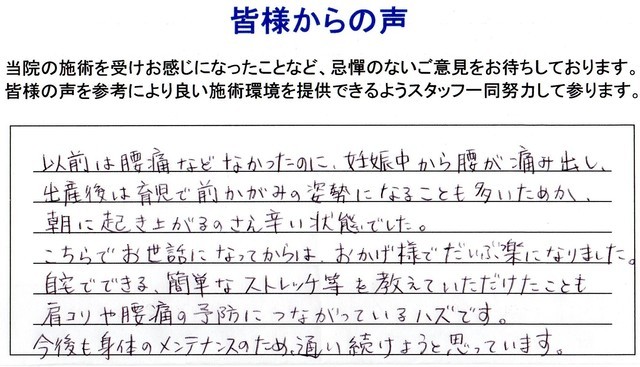 皆様からの声
当院の施術を受けお感じになったことなど、忌憚のないご意見をお待ちしております。
皆様の声を参考により良い施術環境を提供できるようスタッフ一同努力して参ります。
以前は腰痛などなかったのに、妊娠中から腰が痛み出し、
出産後は育児で前かがみの姿勢になることも多いためか、
朝に起き上がるのさえ辛い状態でした。
こちらでお世話になってからは、おかげ様でだいぶ楽になりました。
自宅でできる、簡単なストレッチ等を教えていただけたことも
肩コリや腰痛の予防につながっているハズです。
今後も身体のメンテナンスのため、通い続けようと思っています。